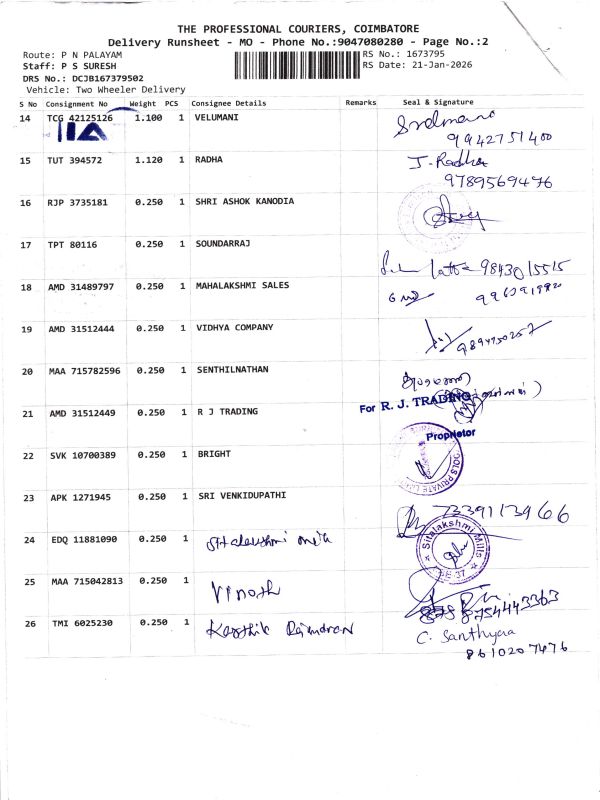 THE PROFESSIONAL COURIERS, COIMBATORE
Delivery Runsheet - MO - Phone No.:9047080280 - Page No.:2
Route: P N PALAYAM
RS No.: 1673795
Staff: P S SURESH
RS Date: 21-Jan-2026
DRS No.: DCJB167379502
Vehicle: Two Wheeler Delivery
S No Consignment No Weight PCS Consignee Details Remarks Seal & Signature
14 TCG 42125126 1.100 1 VELUMANI
9942751400
15 TUT 394572 1.120 1 RADHA J. Radha
9789569476
16 RJP 3735181 0.250 1 SHRI ASHOK KANODIA
17 TPT 80116 0.250 1 SOUNDARRAJ
9843015515
18 AMD 31489797 0.250 1 MAHALAKSHMI SALES
19 AMD 31512444 0.250 1 VIDHYA COMPANY
20 MAA 715782596 0.250 1 SENTHILNATHAN
For R. J. TRADING
21 AMD 31512449 0.250 1 R J TRADING
Proprietor
22 SVK 10700389 0.250 1 BRIGHT
23 APK 1271945 0.250 1 SRI VENKIDUPATHI
7339113966
24 EDQ 11881090 0.250 1
Sitalakshmi Mills
25 MAA 715042813 0.250 1 Vinoth
8754443363
26 TMI 6025230 0.250 1 Karthik Rajendran
C. Santhyaa
8610207476